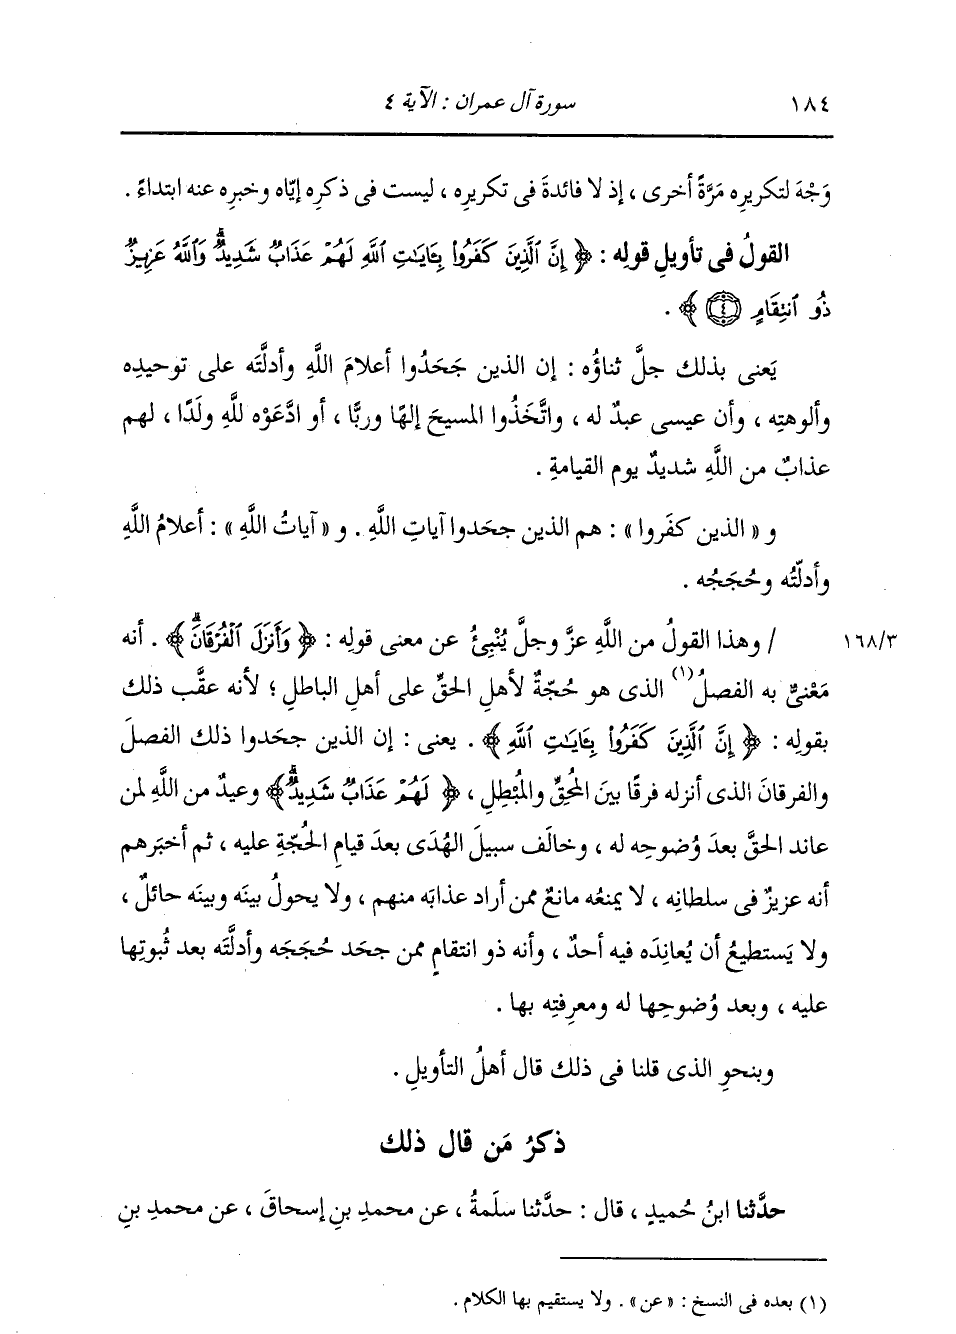 ١٨٤ سورة آل عمران : الآية ٤
وَجْهَ لتكريرِه مَرَّةً أخرى ، إذ لا فائدةَ فى تكريرِه ، ليست فى ذكرِه إيّاه وخبرِه عنه ابتداءً .
القولُ فى تأويلِ قولِه : ﴿ إِنَّ ٱلَّذِينَ كَفَرُوا۟ بِـَٔايَـٰتِ ٱللَّهِ لَهُمْ عَذَابٌ شَدِيدٌۗ وَٱللَّهُ عَزِيزٌ
ذُو ٱنتِقَامٍ ٤ ﴾ .
يَعنى بذلك جلَّ ثناؤُه : إن الذين جَحَدُوا أعلامَ اللَّهِ وأدلَّتَه على توحيدِه
وألوهتِه ، وأن عيسى عبدٌ له ، واتَّخَذُوا المسيحَ إلهًا وربًّا ، أو ادَّعَوْه للَّهِ ولَدًا ، لهم
عذابٌ من اللَّهِ شديدٌ يوم القيامةِ .
و « الذين كفَروا » : هم الذين جحَدوا آياتِ اللَّهِ . و « آياتُ اللَّهِ » : أعلامُ اللَّهِ
وأدلّتُه وحُجَجُه .
١٦٨/٣ / وهذا القولُ من اللَّهِ عزَّ وجلَّ يُنْبِئُ عن معنى قولِه : ﴿ وَأَنزَلَ ٱلْفُرْقَانَۗ ﴾ . أنه
مَعْنِىٌّ به الفصلُ(١) الذى هو حُجّةٌ لأهلِ الحقِّ على أهلِ الباطلِ ؛ لأنه عقَّب ذلك
بقولِه : ﴿ إِنَّ ٱلَّذِينَ كَفَرُوا۟ بِـَٔايَـٰتِ ٱللَّهِ ﴾ . يعنى : إن الذين جحَدوا ذلك الفصلَ
والفرقانَ الذى أنزله فرقًا بينَ المُحِقِّ والمُبْطِلِ ، ﴿ لَهُمْ عَذَابٌ شَدِيدٌۗ ﴾ وعيدٌ من اللَّهِ لمن
عاند الحقَّ بعدَ وُضوحِه له ، وخالَف سبيلَ الهُدَى بعدَ قيامِ الحُجّةِ عليه ، ثم أخبَرهم
أنه عزيزٌ فى سلطانِه ، لا يمنعُه مانعٌ ممن أراد عذابَه منهم ، ولا يحولُ بينَه وبينَه حائلٌ ،
ولا يَستطيعُ أن يُعانِدَه فيه أحدٌ ، وأنه ذو انتقامٍ ممن جحَد حُجَجَه وأدلَّتَه بعد ثُبوتِها
عليه ، وبعد وُضوحِها له ومعرفتِه بها .
وبنحوِ الذى قلنا فى ذلك قال أهلُ التأويلِ .
ذكرُ مَن قال ذلك
حدَّثنا ابنُ حُميدٍ ، قال : حدَّثنا سلَمةُ ، عن محمدِ بنِ إسحاقَ ، عن محمدِ بنِ
(١) بعده فى النسخ : « عن » . ولا يستقيم بها الكلام .